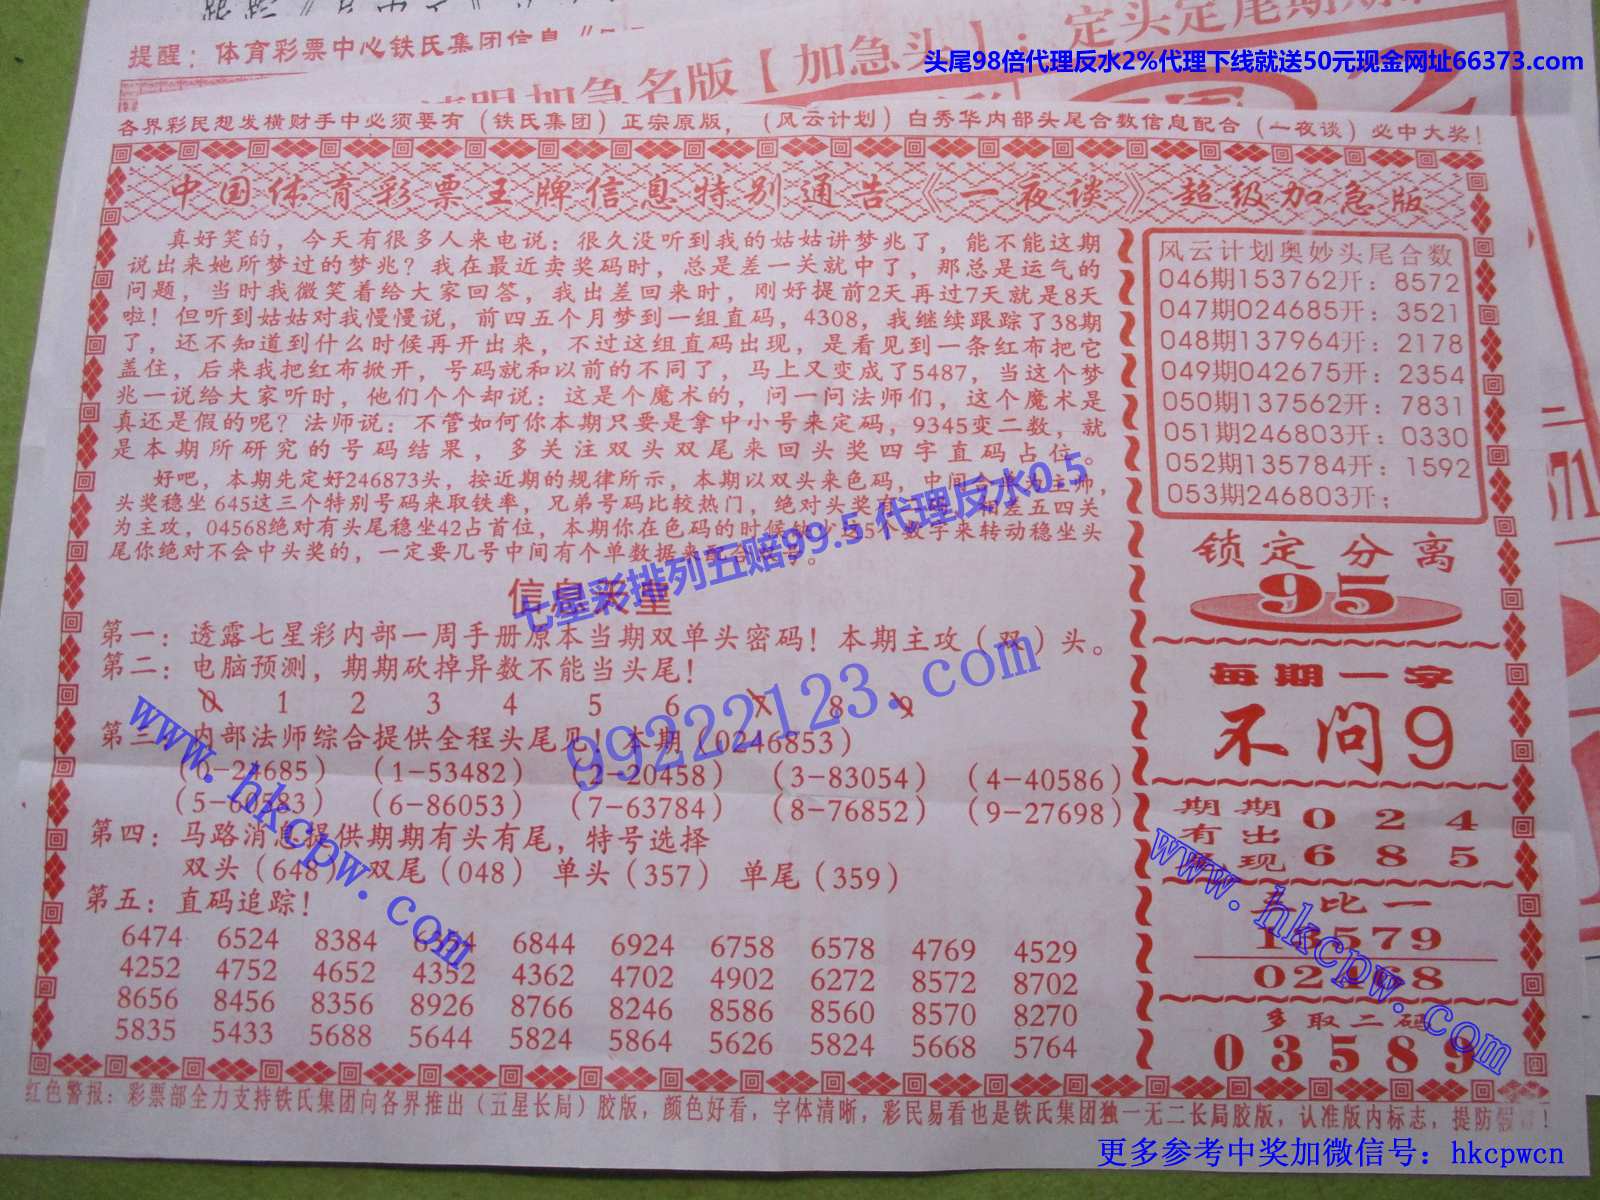 提醒：体育彩票中心铁氏集团信息
加急名版【加急头】：定头定尾期期
头尾98倍代理反水2%代理下线就送50元现金网址66373.com
各界彩民想发横财手中必须要有（铁氏集团）正宗原版，（风云计划）白秀华内部头尾合数信息配合（一夜谈）必中大奖！
中国体育彩票王牌信息特别通告《一夜谈》超级加急版
真好笑的，今天有很多人来电说：很久没听到我的姑姑讲梦兆了，能不能这期
说出来她所梦过的梦兆？我在最近卖奖码时，总是差一关就中了，那总是运气的
问题，当时我微笑着给大家回答，我出差回来时，刚好提前2天再过7天就是8天
啦！但听到姑姑对我慢慢说，前四五个月梦到一组直码，4308，我继续跟踪了38期
了，还不知道到什么时候再开出来，不过这组直码出现，是看见到一条红布把它
盖住，后来我把红布掀开，号码就和以前的不同了，马上又变成了5487，当这个梦
兆一说给大家听时，他们个个却说：这是个魔术的，问一问法师们，这个魔术是
真还是假的呢？法师说：不管如何你本期只要是拿中小号来定码，9345变二数，就
是本期所研究的号码结果，多关注双头双尾来回头奖四字直码占位。
好吧，本期先定好246873头，按近期的规律所示，本期以双头来色码，中间合单为主师，
头奖稳坐645这三个特别号码来取铁率，兄弟号码比较热门，绝对头奖有 相差五四关
为主攻，04568绝对有头尾稳坐42占首位，本期你在色码的时候 少 5个数字来转动稳坐头
尾你绝对不会中头奖的，一定要几号中间有个单数据来 合 号。
信息天堂
第一：透露七星彩内部一周手册原本当期双单头密码！本期主攻（双）头。
第二：电脑预测，期期砍掉异数不能当头尾！
0 1 2 3 4 5 6 7 8 9
第三：内部法师综合提供全程头尾见！本期（0246853）
（0-24685）（1-53482）（2-20458）（3-83054）（4-40586）
（5-60583）（6-86053）（7-63784）（8-76852）（9-27698）
第四：马路消息提供期期有头有尾，特号选择
双头（648）双尾（048）单头（357）单尾（359）
第五：直码追踪！
6474 6524 8384 6844 6924 6758 6578 4769 4529
4252 4752 4652 4352 4362 4702 4902 6272 8572 8702
8656 8456 8356 8926 8766 8246 8586 8560 8570 8270
5835 5433 5688 5644 5824 5864 5626 5824 5668 5764
风云计划奥妙头尾合数
046期153762开：8572
047期024685开：3521
048期137964开：2178
049期042675开：2354
050期137562开：7831
051期246803开：0330
052期135784开：1592
053期246803开：
锁定分离
95
每期一字
不问9
期期 0 2 4
有出 6 8 5
现
三比一
13579
02468
多取二码
03589
红色警报：彩票部全力支持铁氏集团向各界推出（五星长局）胶版，颜色好看，字体清晰，彩民易看也是铁氏集团独一无二长局胶版，认准版内标志，提防假冒！
七星彩排列五赔99.5 代理反水0.5
99222123.com
www.hkcpw.com
www.hkcpw.com
更多参考中奖加微信号：hkcpwcn